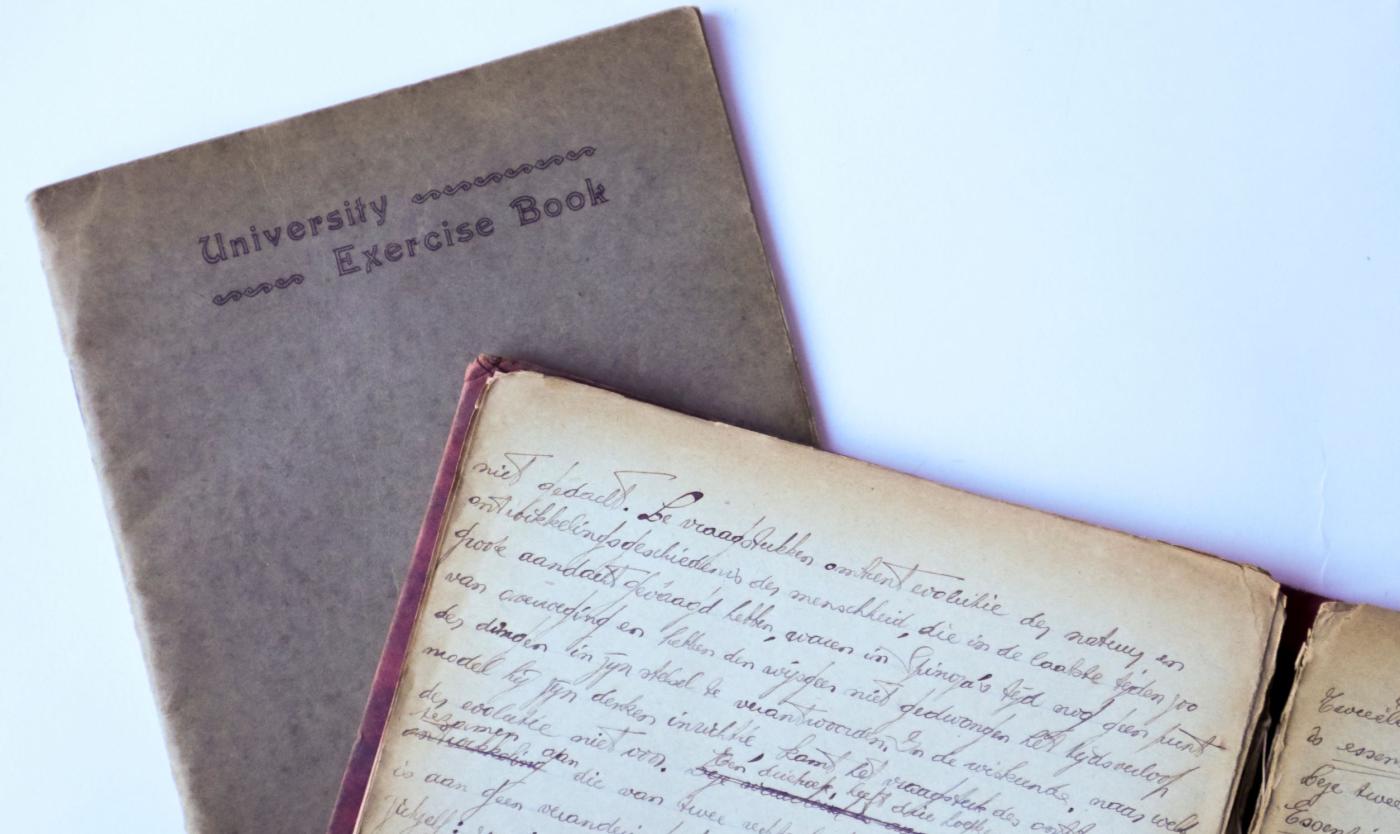 University
Exercise Book
niet gedacht. De vraagstukken omtrent evolutie der natuur en
ontwikkelingsgeschiedenis der menschheid, die in de laatste tijden zoo
groote aandacht gevraagd hebben, waren in Spinoza's tijd nog geen punt
van overweging en hebben den wijsgeer niet gedwongen het tijdsverloop
der dingen in zijn stelsel te verantwoorden. In de wiskunde, naar welk
model hij zijn denken inrichtte, komt het vraagstuk des
der evolutie niet voor. Een driehoek, heeft drie hoeken
tezamen van
ontwikkeling die van twee
is aan geen
zichzelf
is essen
Deze twee